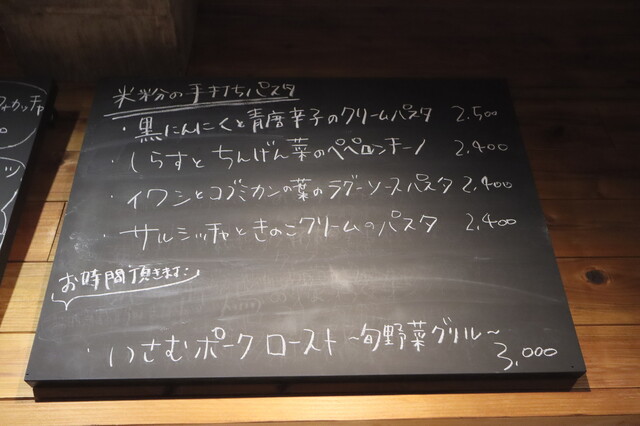 ォカッチャ
米粉の手打ちパスタ
・黒にんにくと青唐辛子のクリームパスタ 2,500
・しらすとちんげん菜のペペロンチーノ 2,400
・イワシとコブミカンの葉のラグーソースパスタ 2,400
・サルシッチャときのこクリームのパスタ 2,400
お時間頂きます
・いさむポークロースト〜旬野菜グリル〜
3,000